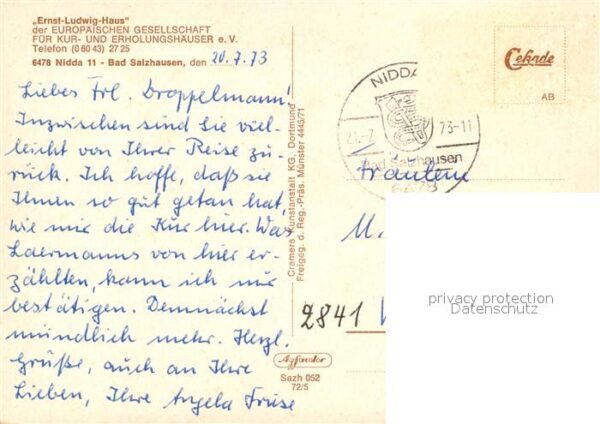 „Ernst-Ludwig-Haus"
der EUROPÄISCHEN GESELLSCHAFT
FÜR KUR- UND ERHOLUNGSHÄUSER e. V.
Telefon (0 60 43) 27 25
6478 Nidda 11 - Bad Salzhausen, den 20.7.73
Liebes Frl. Droppelmann!
Inzwischen sind Sie viel-
leicht von Ihrer Reise zu-
rück. Ich hoffe, daß sie
Ihnen so gut getan hat,
wie mir die Kur hier. Was
Laermanns von hier er-
zählten, kann ich nur
bestätigen. Demnächst
mündlich mehr. Herzl.
Grüße, auch an Ihre
Lieben, Ihre Angela Fruse
Cramers Kunstanstalt KG, Dortmund
Freigeg. d. Reg.-Präs. Münster 4445/71
Agfacolor
Sazh 052
72/5
NIDDA
21.-7. 73-11
Bad Salzhausen
6478
Cekade
AB
Fräulein
M.
2841
privacy protection
Datenschutz